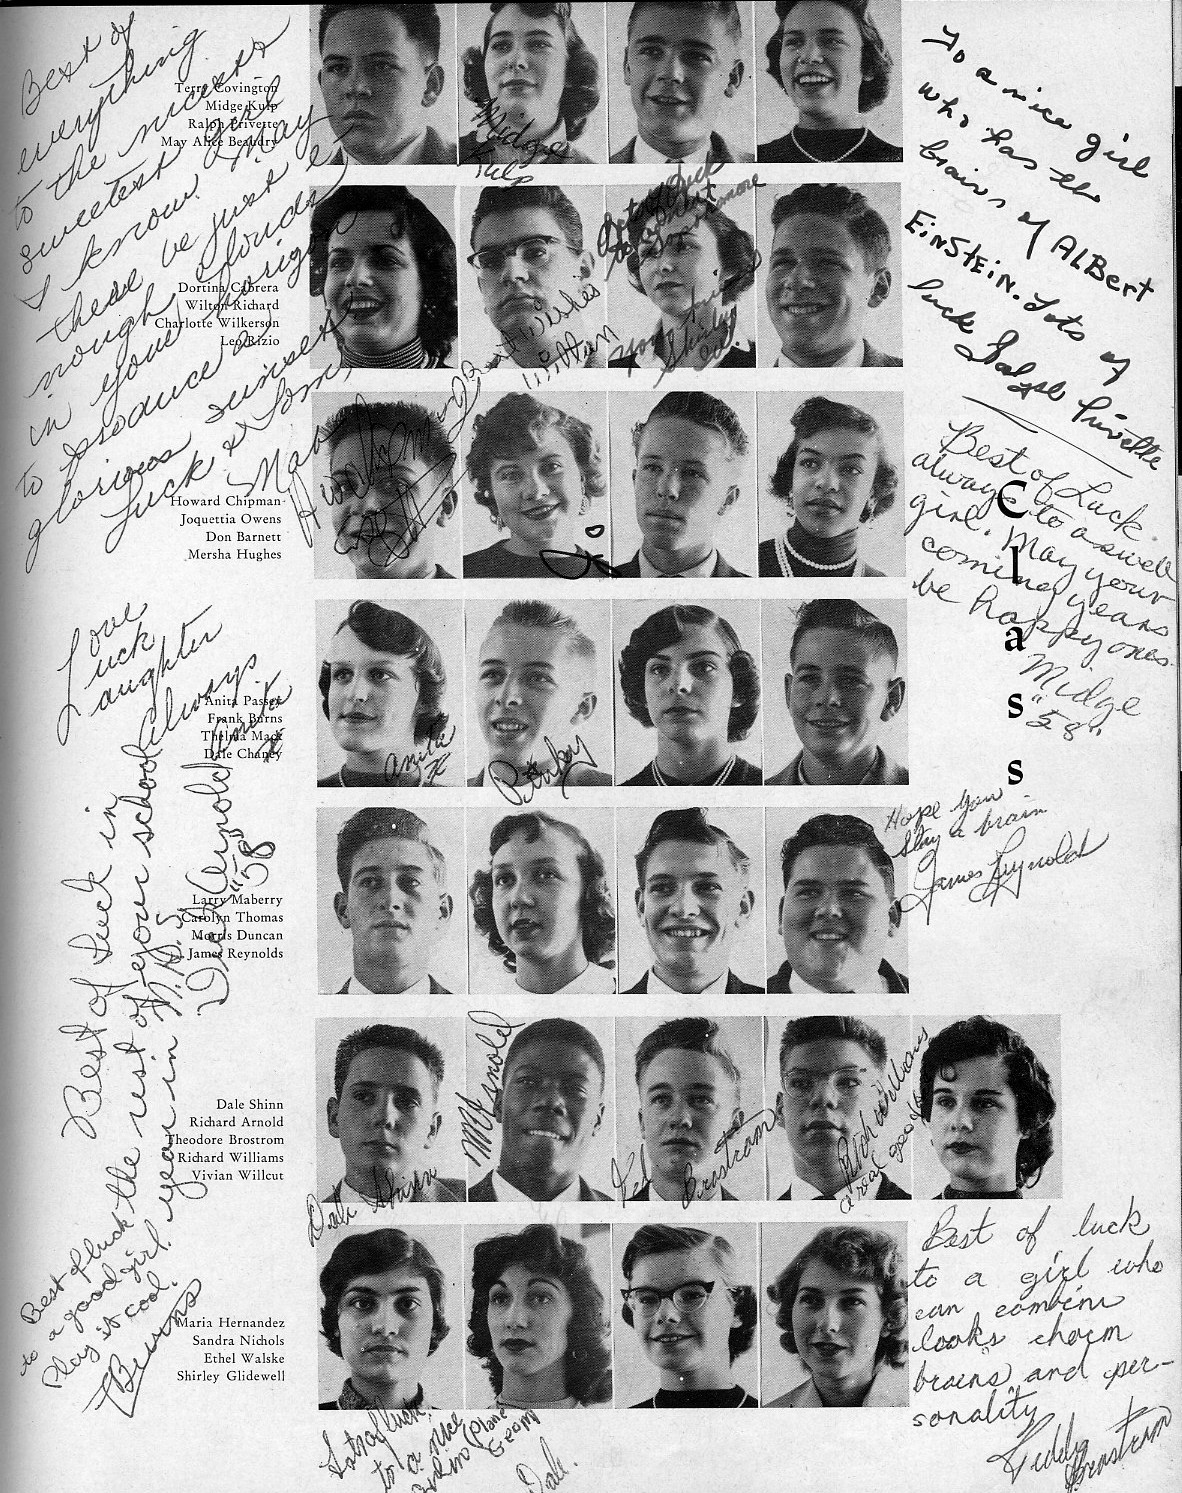 Best of
everything
to the nicest
sweetest girl
I know. May
there be just e
nough clouds
in your horizon
to produce a
glorious sunset
Luck & Love,
Terry Covington
Midge Kulp
Ralph Privette
May Alice Beaudry
Midge
Kulp
To a nice girl
who has the
brains of ALBert
EinSTEin. Lots of
luck
Privette
Dortina Cabrera
Wilton Richard
Charlotte Wilkerson
Leo Rizio
Best wishes
Wilton
Howard Chipman
Joquettia Owens
Don Barnett
Mersha Hughes
Jo
Best of Luck
always to a swell
girl. May your
coming years
be happy ones.
Midge
"58"
C
l
a
s
s
Love
Luck
Laughter
Always
Anita
Anita Passer
Frank Burns
Thelma Mack
Dale Chaney
Anita
Pinky
Hope you
stay a brain
James Reynolds
Larry Maberry
Carolyn Thomas
Morris Duncan
James Reynolds
Best of Luck in
the rest of your school
year in N.D.S
Arnold
"58"
Dale Shinn
Richard Arnold
Theodore Brostrom
Richard Williams
Vivian Willcut
Dale Shinn
Arnold
Ted Brostrom
Rich Williams
a real good
Best of luck
to a good girl.
Play it cool.
Burns
Maria Hernandez
Sandra Nichols
Ethel Walske
Shirley Glidewell
Best of luck
to a girl who
can combine
looks charm
brains and per-
sonality
Teddy
Brostrom
Lots of luck,
to a nice
girl in (Plane
Geom)
Dale.